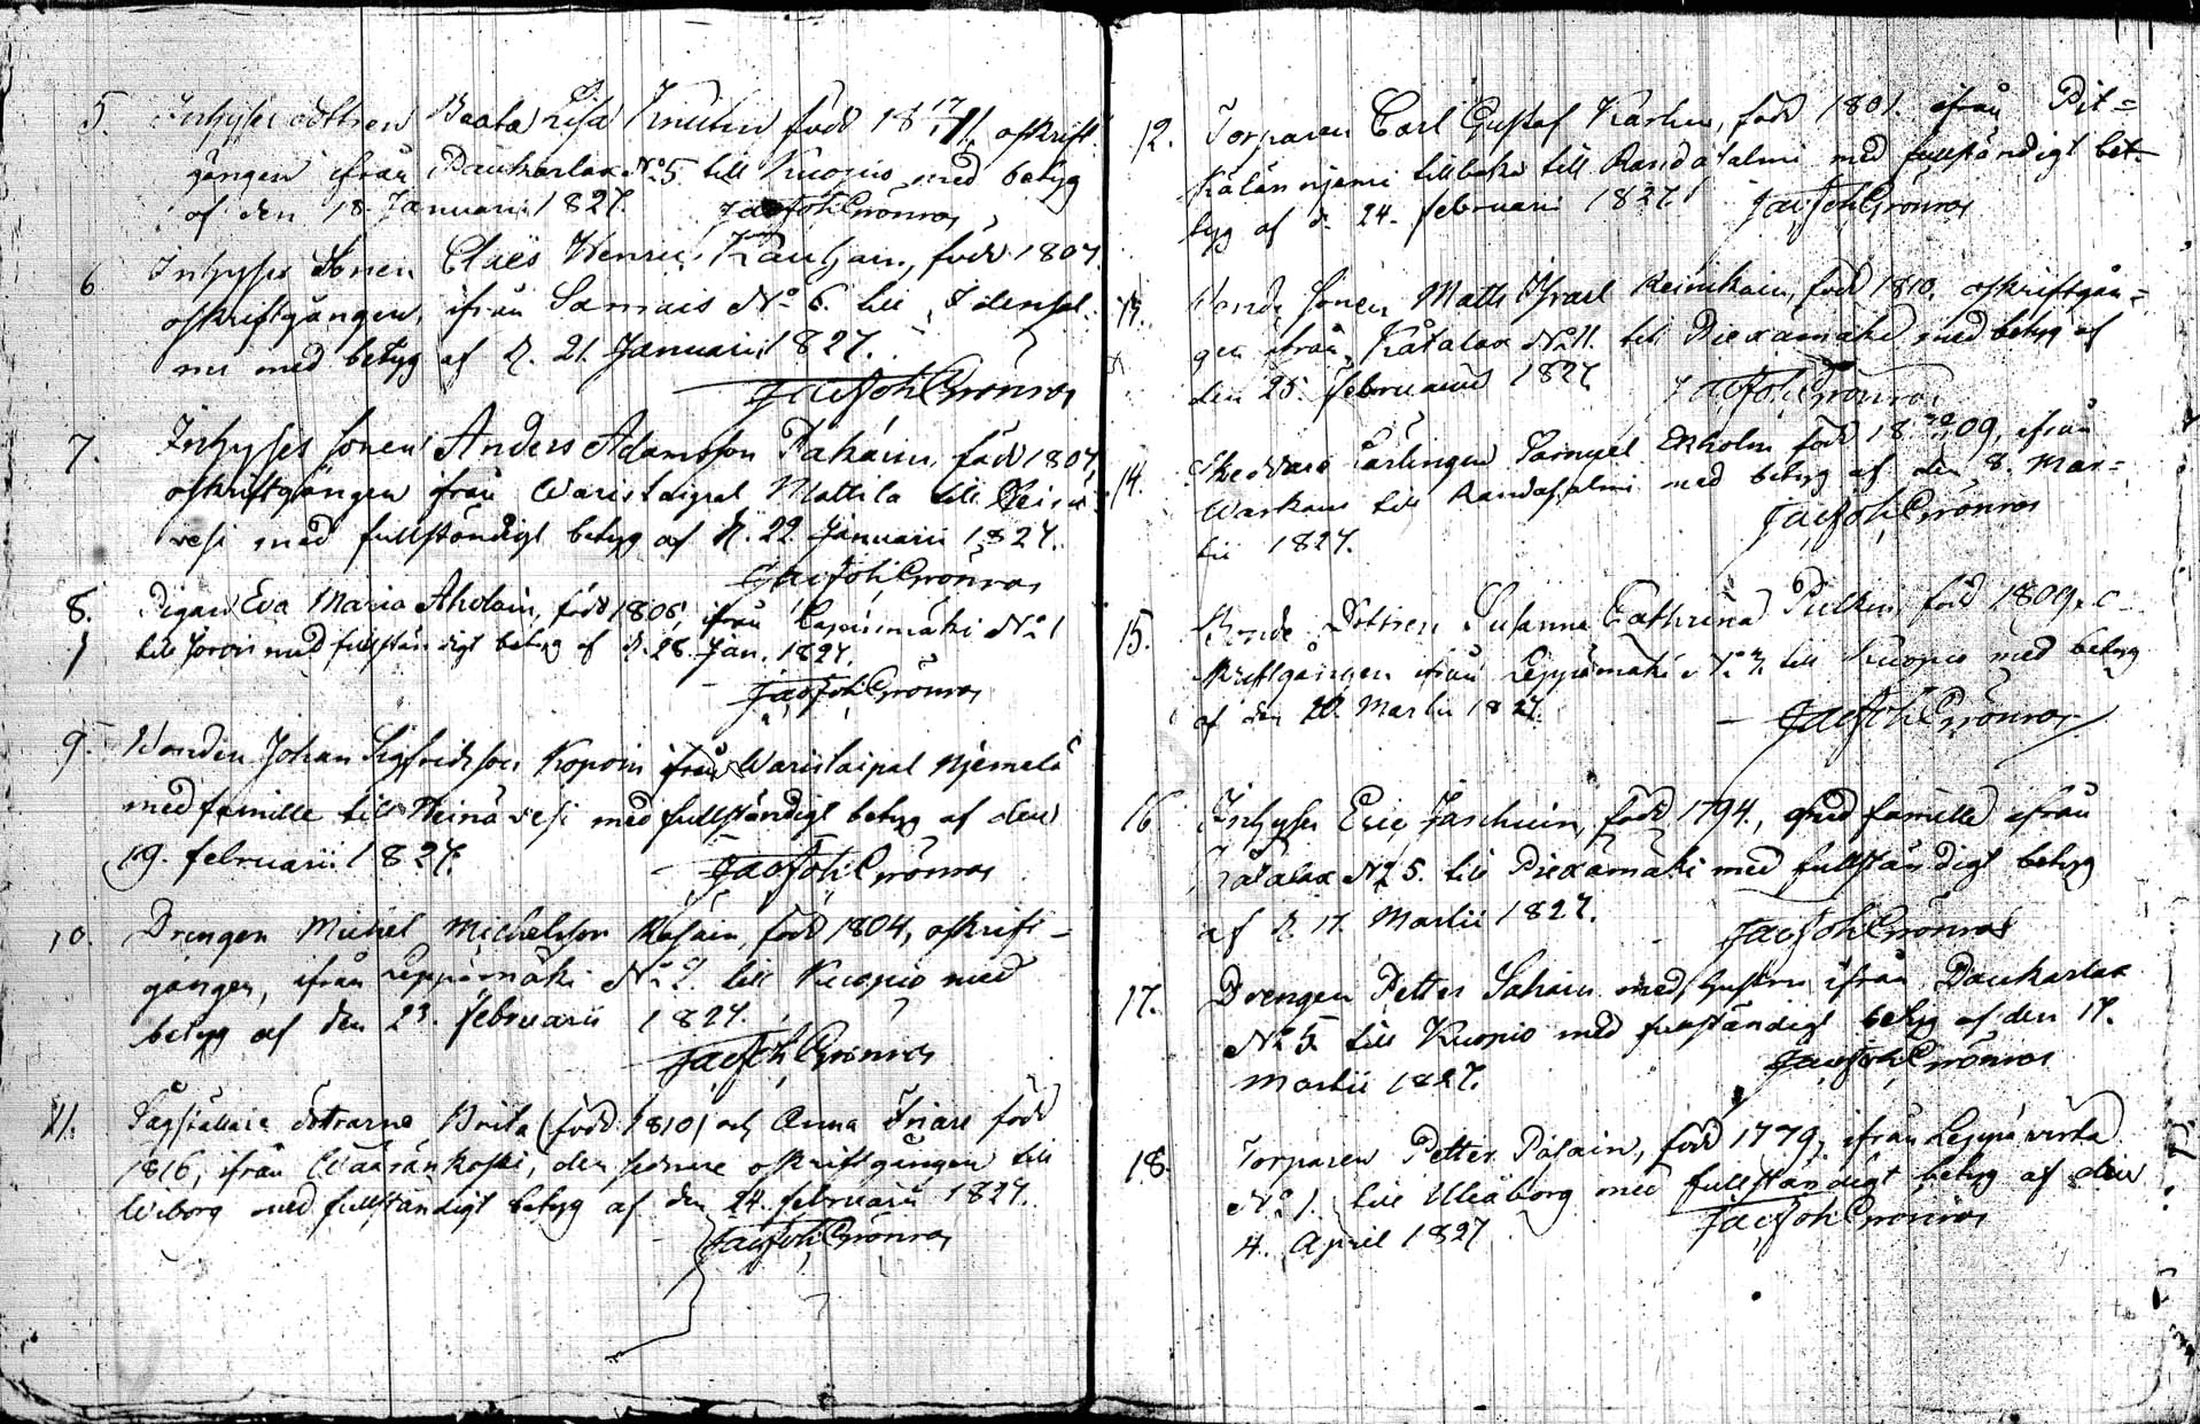 5. Inhyses dottren Beata Lisa Knutin född 18 17/1 11. oskrift
gången ifrån Paukarlax No 5. till Kuopio med betyg
af den 18. Januarii 1827. Jac Joh Grönros
6. Inhyses Sonen Claës Henric Kauhain, född 1807.
oskriftgången, ifrån Samais No 6. till Idensal
mi med betyg af d. 21. Januarii 1827.
Jac Joh Grönros
7. Inhyses sonen Anders Adamsson Pakain, född 1807,
oskriftgången ifrån Warislaipal Mattila till Heinä
vesi med fullständigt betyg af d. 22. Januarii 1827.
Jac Joh Grönros
8. Pigan Eva Maria Aholain, född 1806, ifrån Leppämäki No 1
till Jorois med fullständigt betyg af d. 28. Jan. 1827.
Jac Joh Grönros
9. Bonden Johan Sigfridsson Kopoin ifrån Warislaipal Njemelä
med famille till Heinävesi med fullständigt betyg af den
19. februarii 1827.
Jac Joh Grönros
10. Drengen Michel Michelsson Räsäin, född 1804, oskrift-
gången, ifrån Leppämäki No 2. till Kuopio med
betyg af den 23. februarii 1827.
Jac Joh Grönros
11. Sågställare döttrarna Brita (född 1810) och Anna Friare född
1816, ifrån Waaränkoski, den sednare oskriftgången till
Wiborg med fullständigt betyg af den 24. februarii 1827.
Jac Joh Grönros
12. Torparen Carl Gustaf Karhu, född 1801. ifrån Pit=
kälänniemi tillbaka till Randasalmi med fullständigt bet-
tyg af d. 24. februarii 1827. Jac Joh Grönros
13. Bonde Sonen Matts Israel Reinikain, född 1810. oskriftgån=
gen ifrån Kåtalax No 11. till Piexamäki med betyg af
den 25. februarii 1827. Jac Joh Grönros
14. Samuel Ekholm född 18 09, ifrån
Warkaus till Randasalmi med betyg af den 8. Mar=
tii 1827. Jac Joh Grönros
15. Bonde Dottren Susanna Cathrina Pulkin, född 1809, o-
skriftgången ifrån Leppämäki No 3. till Kuopio med betyg
af den 10. Martii 1827.
Jac Joh Grönros
16. Inhyses Eric Jäschuin, född 1794., med famille ifrån
Kåtalax No 5. till Piexamäki med fullständigt betyg
af d. 17. Martii 1827.
Jac Joh Grönros
17. Drengen Petter Sahain med hustru ifrån Paukarlax
No 5. till Kuopio med fullständigt betyg af den 17.
Martii 1827.
Jac Joh Grönros
18. Torparen Petter Pålain, född 1779, ifrån Leppävirta
No 1. till Uleåborg med fullständigt betyg af den
4. April 1827
Jac Joh Grönros